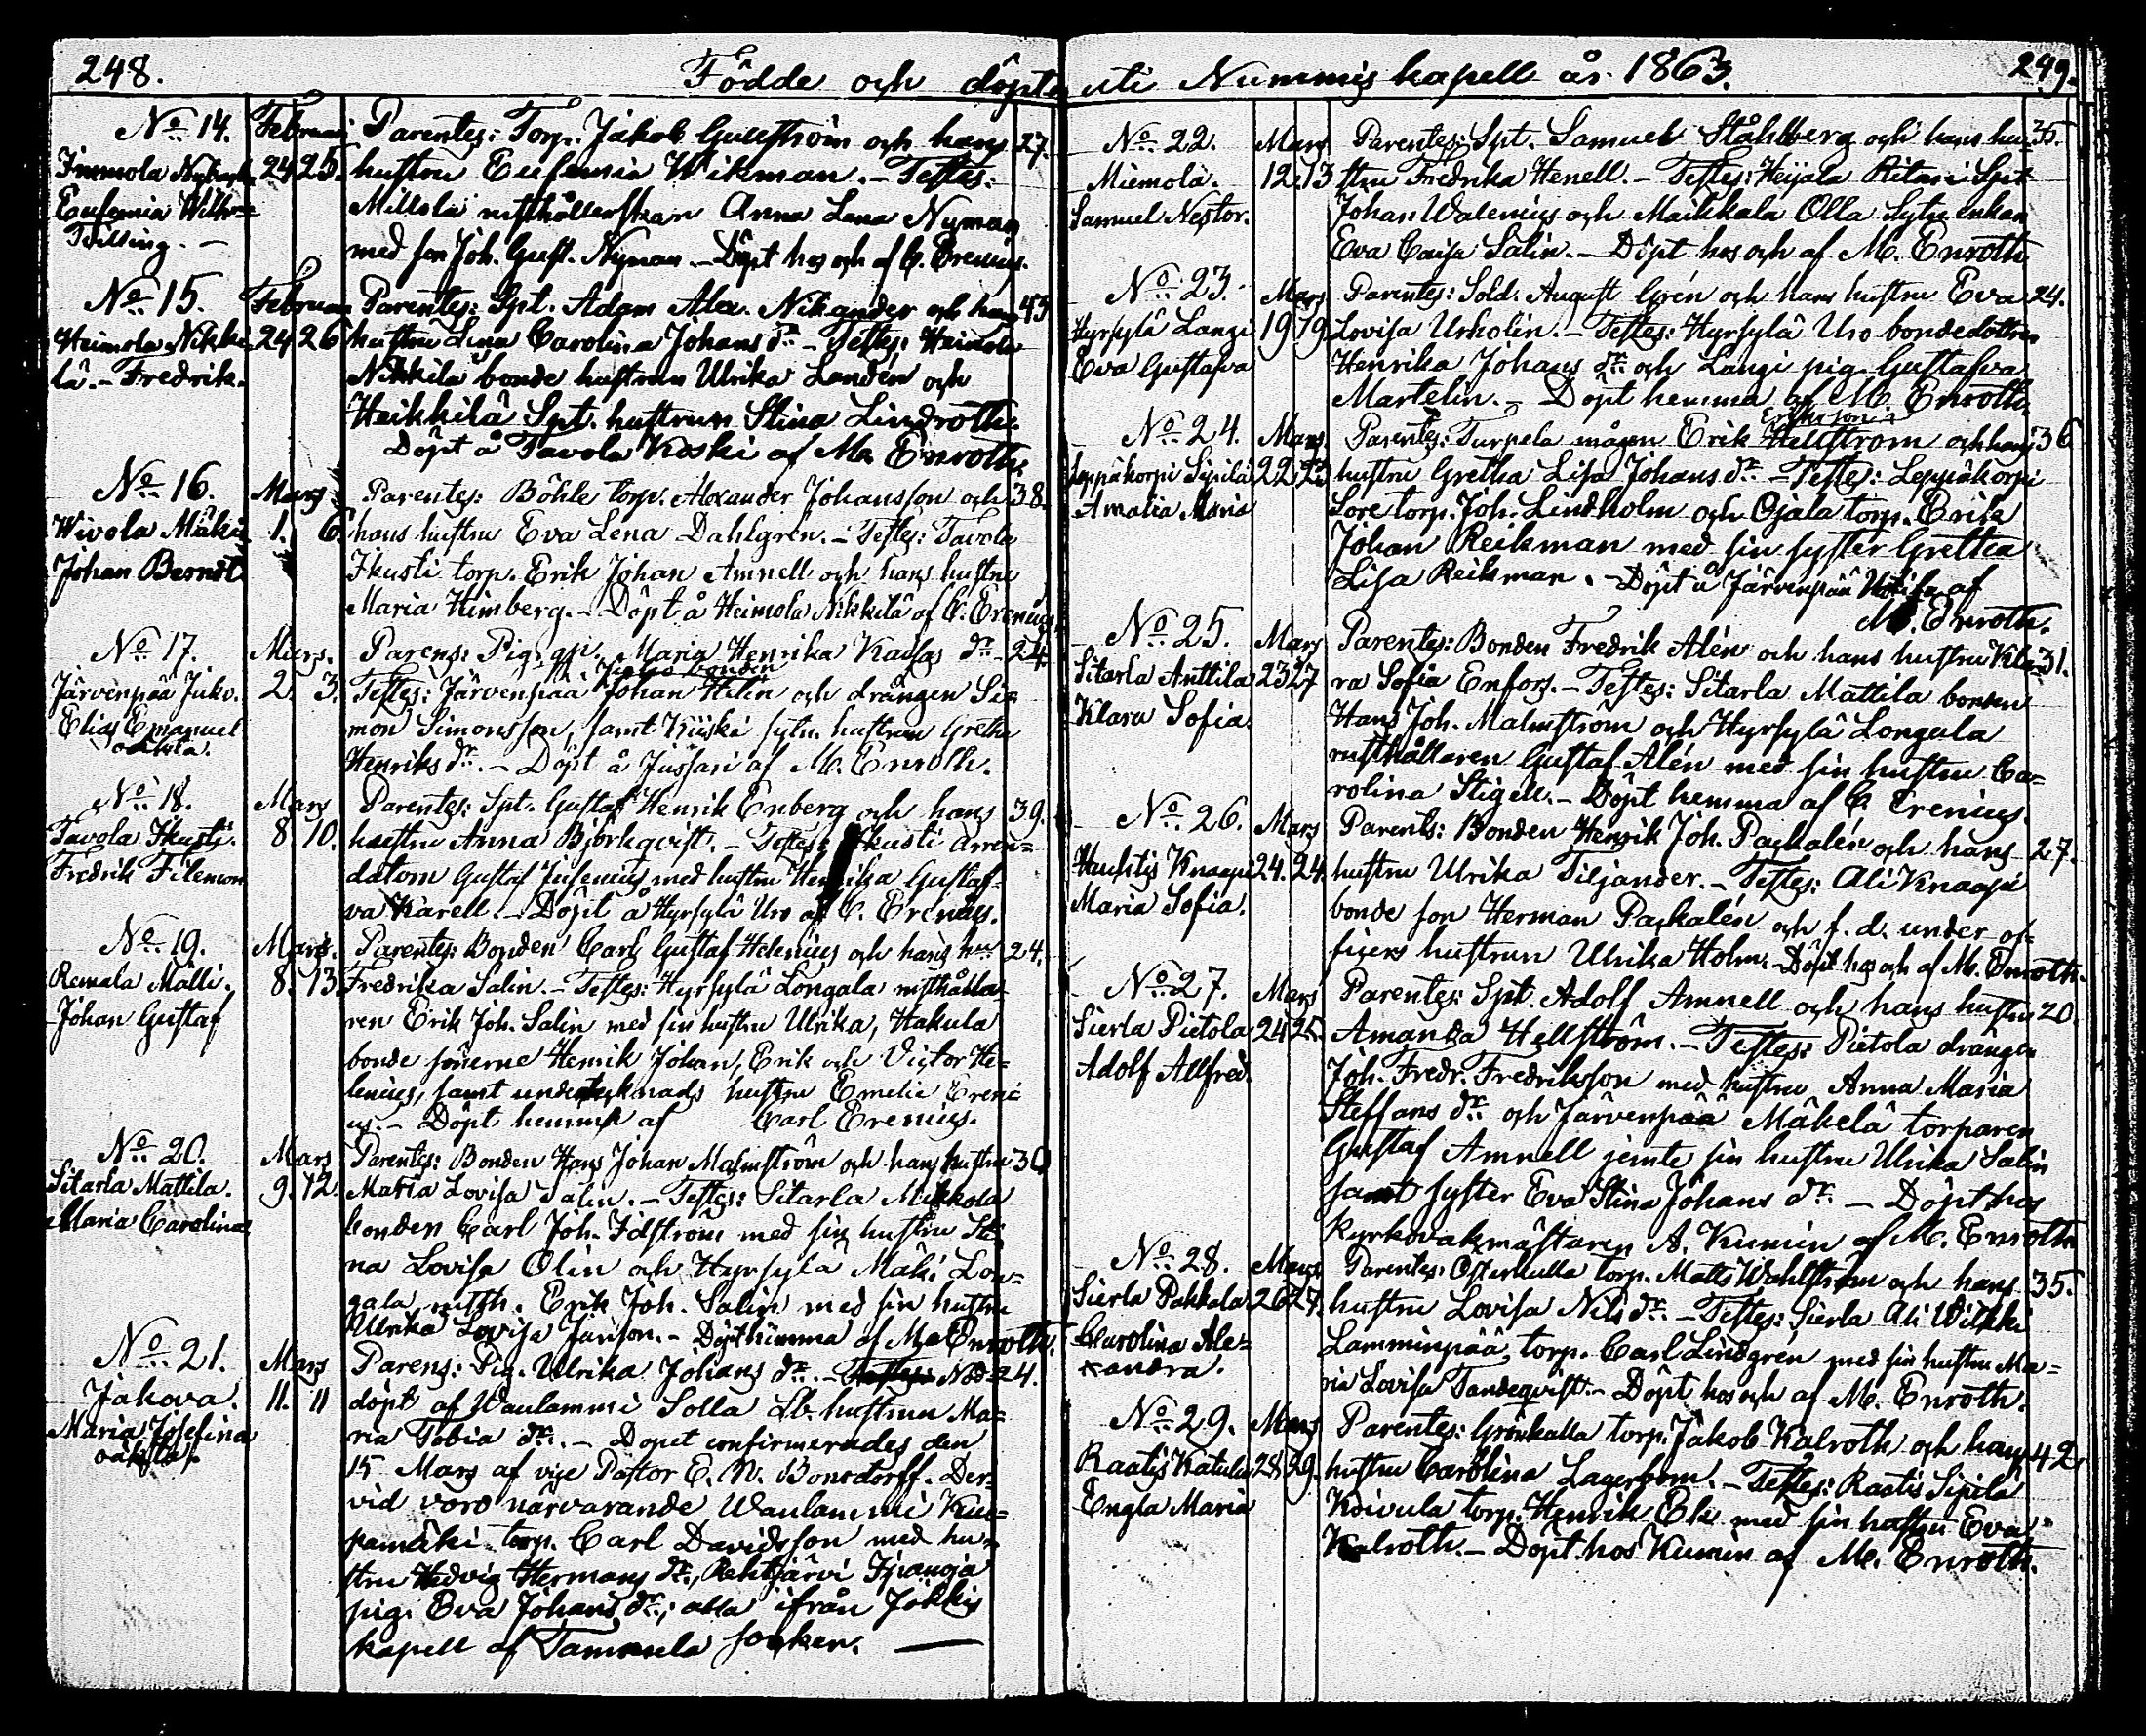 248.
Födde och döpte uti Nummis kapell år 1863.
249.
No 14. Februari Parentes: Torp. Jakob Gullström och hans 27.
Immola 24 25. hustru Eufemia Wikman. – Testes:
Eufemia Wilh=
Millola rusthållerskan Anna Lena Nyman
Tvilling. –
med son Joh. Gust. Nyman. – Döpt hos och af C. Erenius.
No 15. Februari Parentes: Spt. Adam Alex. Nikander och hans 43
Heimola Nikki 24 26 hustru Lina Carolina Johans dr – Testes: Heimola
lä. – Fredrik.
Nikkilä bonde hustrun Ulrika Landén och
Heikkilä Spt. hustrun Stina Lindroth.
Döpt å Tavola Koski af M. Enroth.
No 16. Mars Parentes: Böhle torp. Alexander Johansson och 38.
Wivola Mäki 1. 6. hans hustru Eva Lena Dahlgrén. – Testes: Tavola
Johan Berndt
Ikusti torp. Erik Johan Amnell och hans hustru
Maria Himberg. – Döpt å Heimola Nikkilä af C. Erenius.
No 17. Mars. Parens: Pig. Maria Henrika Kaslas dr 24.
bonden
Järvenpää Juko. 2. 3. Testes: Järvenpää Johan Helin och drängen Si=
Elias Emanuel
mon Simonsson, samt Kiiski sytn. hustrun Gretha
oäkta.
Henriks dr. – Döpt å Jussari af M. Enroth.
No 18. Mars Parentes: Spt. Gustaf Henrik Enberg och hans 39.
Tavola Ikusti. 8 10. hustru Anna Björkqvist. – Testes: Ikusti arren=
Fredrik Filemon
datorn Gustaf Jusenius med hustru Henrika Gustaf=
va Karell. – Döpt å Hyrsylä Uro af C. Erenius.
No 19. Mars. Parentes: Bonden Carl Gustaf Helenius och hans hu 24.
Remala Mälli. 8. 13. Fredrika Salin. – Testes: Hyrsylä Longala rusthålla=
Johan Gustaf
ren Erik Joh. Salin med sin hustru Ulrika, Hakula
bonde sönerne Henrik Johan, Erik och Victor He=
lenius, samt undertecknads hustru Emelie Ereni
us. – Döpt hemma af Carl Erenius.
No 20. Mars Parentes: Bonden Hans Johan Malmström och hans hustru 30
Sitarla Mattila. 9. 12. Maria Lovisa Salin. – Testes: Sitarla Mikkola
Maria Carolina
bonden Carl Joh. Idström med sin hustru Sti=
na Lovisa Olin och Hyrsylä Mäki Lon=
gala rusth. Erik Joh. Salin med sin hustru
Ulrika Lovisa Janson. – Döpt hemma af M. Enroth.
No 21. Mars Parens: Pig. Ulrika Johans dr. – Testes: Nöd= 24.
Jakova. 11. 11 döpt af Waulammi Solla Lb. hustrun Ma=
Maria Josefina
ria Tobia dr. – Dopet confirmerades den
oäkta.
15 Mars af vice Pastor E. N. Bonsdorff. Der=
vid voro närvarande Waulammi Kui=
pamäki torp. Carl Davidsson med hu=
stru Hedvig Hermans dr, Rehtijärvi
pig. Eva Johans dr; alla ifrån Jokkis
kapell af Tammela socken. —
No 22. Mars Parentes: Spt. Samuel Ståhlberg och hans hu 35.
Miemola. 12 13 stru Fredrika Henell. – Testes: Heijala Ritari Spt
Samuel Nestor.
Johan Walenius och Maikkala Olla Sytn. enkan
Eva Caisa Salin. – Döpt hos och af M. Enroth
No 23. Mars Parentes: Sold. August Grén och hans hustru Eva 24.
Hyrsylä Langi 19 19 Lovisa Urholin. – Testes: Hyrsylä Uro bondedottren
Eva Gustafva
Henrika Johans dr och Langi pig. Gustafva
Martelin. – Döpt hemma af M. Enroth.
Eriksson
No 24. Mars. Parentes: Turpela mågen Erik Hellström och hans 36
Leppäkorpi Sipilä 22 23 hustru Gretha Lisa Johans dr – Testes: Leppäkorpi
Amalia Maria
Sore torp. Joh. Lindholm och Ojala torp. Erik
Johan Reikman med sin syster Gretha
Lisa Reikman. – Döpt å Järvenpää af
M. Enroth.
No 25. Mars Parentes: Bonden Fredrik Alén och hans hustru Kla= 31.
Sitarla Anttila 23 27 ra Sofia Enfors. – Testes: Sitarla Mattila bonden
Klara Sofia.
Hans Joh. Malmström och Hyrsylä Longala
rusthållaren Gustaf Alén med sin hustru Ca=
rolina Stigell. – Döpt hemma af C. Erenius.
No 26. Mars Parents: Bonden Henrik Joh. Packalén och hans 27.
Huhtis Knaapi 24. 24. hustru Ulrika Tiljander. – Testes: Ali Knaapi
Maria Sofia.
bonde son Herman Packalén och f. d. under of=
ficers hustrun Ulrika Holm. – Döpt hos och af M. Enroth.
No 27. Mars Parentes: Spt. Adolf Amnell och hans hustru 20.
Sierla Pietola 24 25. Amanda Hellström. – Testes: Pietola drängen
Adolf Allfred.
Joh. Fredr. Fredriksson med hustru Anna Maria
Steffans dr och Järvenpää Mäkelä torparen
Gustaf Amnell jemte sin hustru Ulrika Salin
samt syster Eva Stina Johans dr. – Döpt hos
kyrkovaktmästaren A. Kumin af M. Enroth
No 28. Mars Parentes: Österkulla torp. Matts Wahlström och hans 35.
Sierla Pakkala 26 27. hustru Lovisa Nils dr. – Testes: Sierla Ali Wilkki
Carolina Ale=
Lamminpää, torp. Carl Lindgren med sin hustru Ma=
xandra.
ria Lovisa Tandeqvist. – Döpt hos och af M. Enroth.
No 29. Mars Parentes: Grönkalla torp. Jakob Kalroth och hans 42.
Raatis Katula 28 29. hustru Carolina Lagerbom. – Testes: Raatis Sipilä
Engla Maria
Koivula torp. Henrik Ek med sin hustru Eva
Kalroth. – Döpt hos Kumin af M. Enroth.